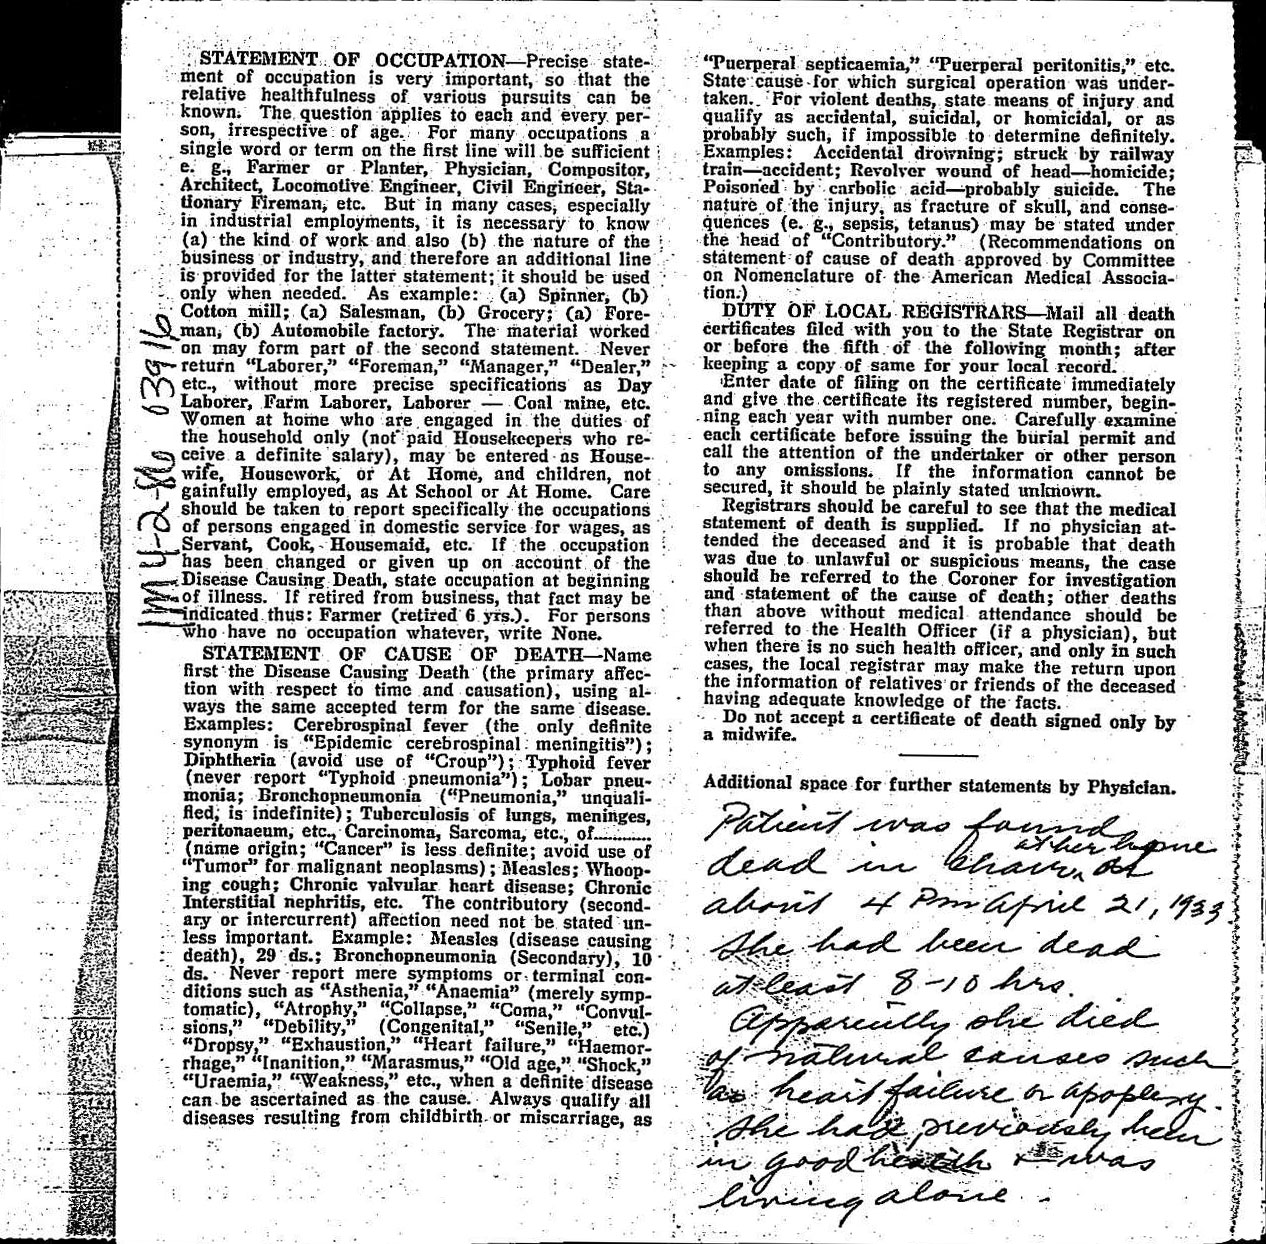 STATEMENT OF OCCUPATION—Precise state-
ment of occupation is very important, so that the
relative healthfulness of various pursuits can be
known. The question applies to each and every per-
son, irrespective of age. For many occupations a
single word or term on the first line will be sufficient
e. g., Farmer or Planter, Physician, Compositor,
Architect, Locomotive Engineer, Civil Engineer, Sta-
tionary Fireman, etc. But in many cases, especially
in industrial employments, it is necessary to know
(a) the kind of work and also (b) the nature of the
business or industry, and therefore an additional line
is provided for the latter statement; it should be used
only when needed. As example: (a) Spinner, (b)
Cotton mill; (a) Salesman, (b) Grocery; (a) Fore-
man, (b) Automobile factory. The material worked
on may form part of the second statement. Never
return "Laborer," "Foreman," "Manager," "Dealer,"
etc., without more precise specifications as Day
Laborer, Farm Laborer, Laborer — Coal mine, etc.
Women at home who are engaged in the duties of
the household only (not paid Housekeepers who re-
ceive a definite salary), may be entered as House-
wife, Housework, or At Home, and children, not
gainfully employed, as At School or At Home. Care
should be taken to report specifically the occupations
of persons engaged in domestic service for wages, as
Servant, Cook, Housemaid, etc. If the occupation
has been changed or given up on account of the
Disease Causing Death, state occupation at beginning
of illness. If retired from business, that fact may be
indicated thus: Farmer (retired 6 yrs.). For persons
who have no occupation whatever, write None.
STATEMENT OF CAUSE OF DEATH—Name
first the Disease Causing Death (the primary affec-
tion with respect to time and causation), using al-
ways the same accepted term for the same disease.
Examples: Cerebrospinal fever (the only definite
synonym is "Epidemic cerebrospinal meningitis");
Diphtheria (avoid use of "Croup"); Typhoid fever
(never report "Typhoid pneumonia"); Lobar pneu-
monia; Bronchopneumonia ("Pneumonia," unquali-
fied, is indefinite); Tuberculosis of lungs, meninges,
peritonaeum, etc., Carcinoma, Sarcoma, etc., of............
(name origin; "Cancer" is less definite; avoid use of
"Tumor" for malignant neoplasms); Measles; Whoop-
ing cough; Chronic valvular heart disease; Chronic
Interstitial nephritis, etc. The contributory (second-
ary or intercurrent) affection need not be stated un-
less important. Example: Measles (disease causing
death), 29 ds.; Bronchopneumonia (Secondary), 10
ds. Never report mere symptoms or terminal con-
ditions such as "Asthenia," "Anaemia" (merely symp-
tomatic), "Atrophy," "Collapse," "Coma," "Convul-
sions," "Debility," (Congenital," "Senile," etc.)
"Dropsy," "Exhaustion," "Heart failure," "Haemor-
rhage," "Inanition," "Marasmus," "Old age," "Shock,"
"Uraemia," "Weakness," etc., when a definite disease
can be ascertained as the cause. Always qualify all
diseases resulting from childbirth or miscarriage, as
"Puerperal septicaemia," "Puerperal peritonitis," etc.
State cause for which surgical operation was under-
taken. For violent deaths, state means of injury and
qualify as accidental, suicidal, or homicidal, or as
probably such, if impossible to determine definitely.
Examples: Accidental drowning; struck by railway
train—accident; Revolver wound of head—homicide;
Poisoned by carbolic acid—probably suicide. The
nature of the injury, as fracture of skull, and conse-
quences (e. g., sepsis, tetanus) may be stated under
the head of "Contributory." (Recommendations on
statement of cause of death approved by Committee
on Nomenclature of the American Medical Associa-
tion.)
DUTY OF LOCAL REGISTRARS—Mail all death
certificates filed with you to the State Registrar on
or before the fifth of the following month; after
keeping a copy of same for your local record.
Enter date of filing on the certificate immediately
and give the certificate its registered number, begin-
ning each year with number one. Carefully examine
each certificate before issuing the burial permit and
call the attention of the undertaker or other person
to any omissions. If the information cannot be
secured, it should be plainly stated unknown.
Registrars should be careful to see that the medical
statement of death is supplied. If no physician at-
tended the deceased and it is probable that death
was due to unlawful or suspicious means, the case
should be referred to the Coroner for investigation
and statement of the cause of death; other deaths
than above without medical attendance should be
referred to the Health Officer (if a physician), but
when there is no such health officer, and only in such
cases, the local registrar may make the return upon
the information of relatives or friends of the deceased
having adequate knowledge of the facts.
Do not accept a certificate of death signed only by
a midwife.
Additional space for further statements by Physician.
Patient was found
dead in chair, at her home at
about 4 Pm April 21, 1933
She had been dead
at least 8-10 hrs.
Apparently she died
of natural causes such
as heart failure or apoplexy.
She had previously been
in good health & was
living alone.
4-2-86 63916